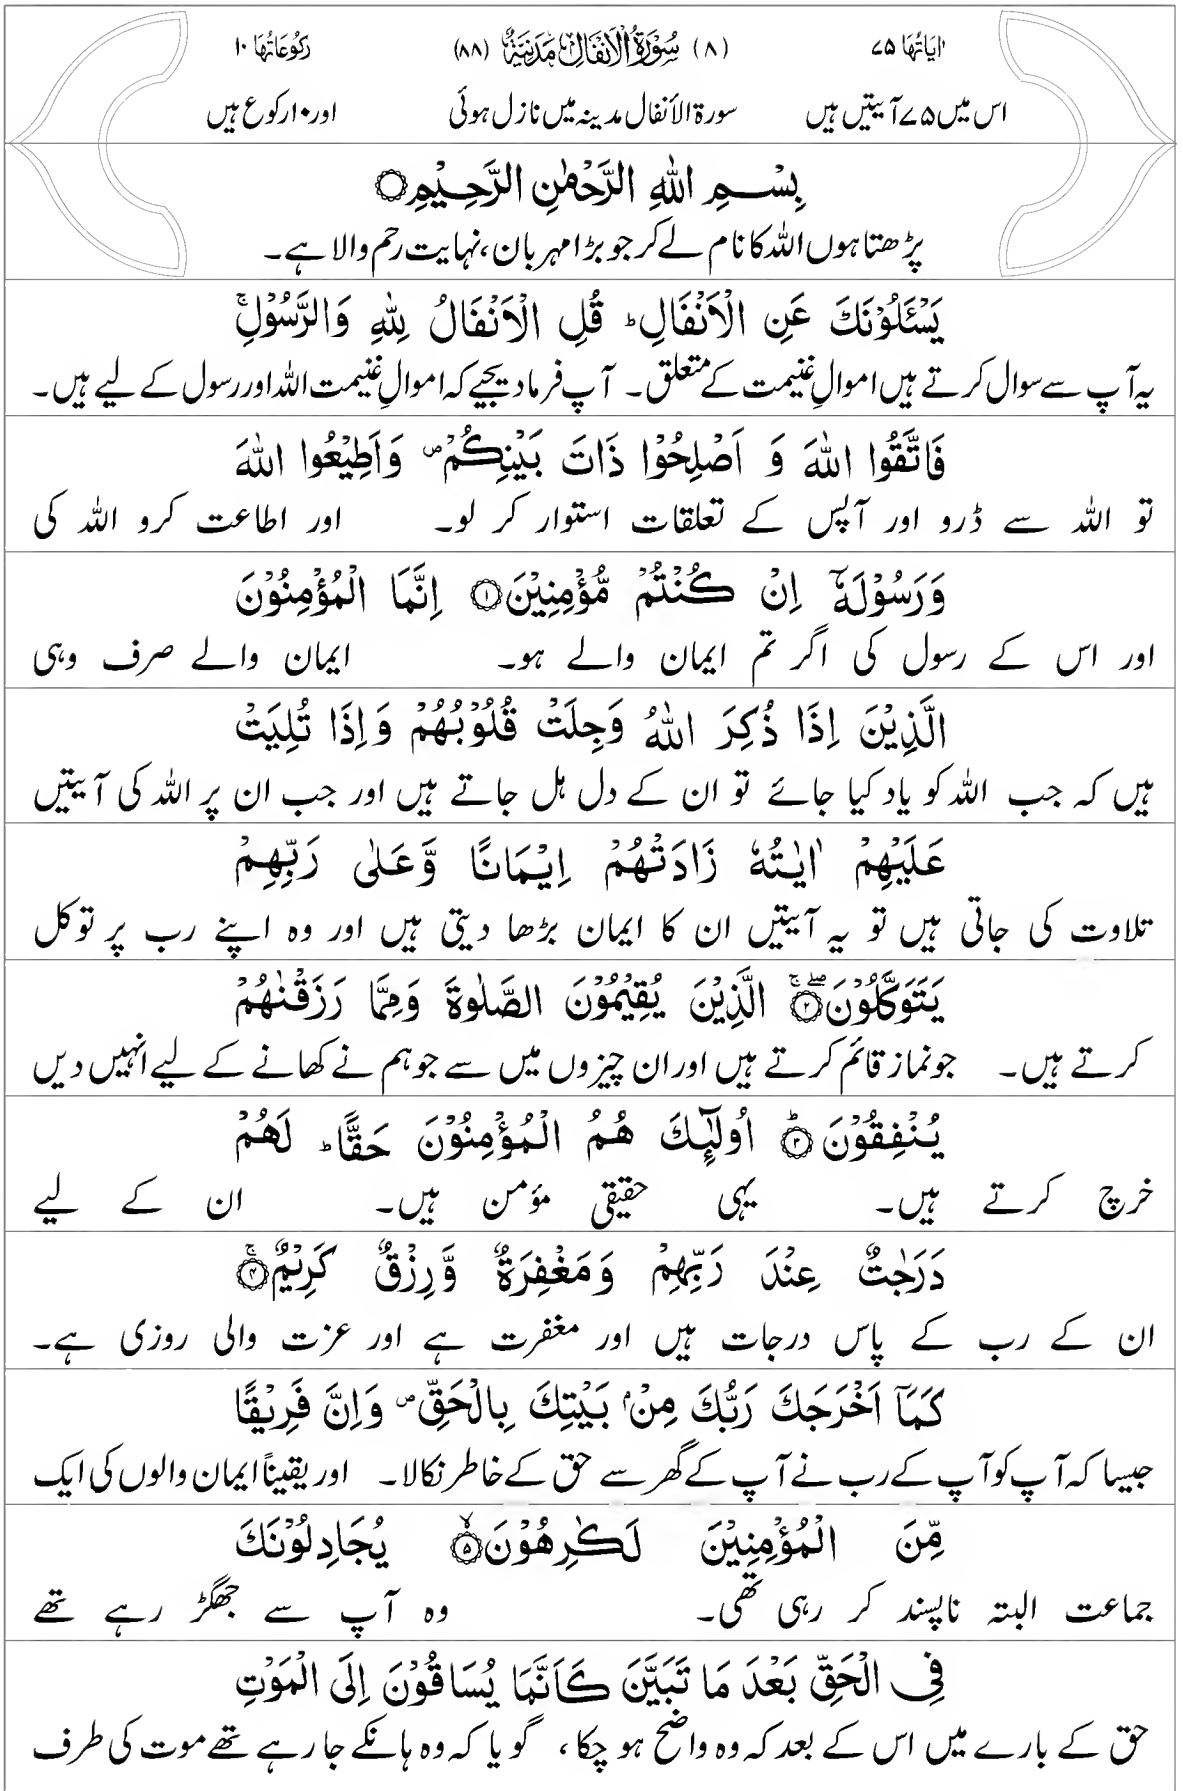 اٰیَاتُهَا ۷۵ (۸) سُوْرَةُ الْاَنْفَالِ مَدَنِيَّةٌ (۸۸) رُكُوْعَاتُهَا ۱۰
اس میں ۷۵ آیتیں ہیں سورۃ الأنفال مدینہ میں نازل ہوئی اور ۱۰ رکوع ہیں
بِسْمِ اللّٰهِ الرَّحْمٰنِ الرَّحِيْمِ۝
پڑھتا ہوں اللہ کا نام لے کر جو بڑا مہربان، نہایت رحم والا ہے۔
يَسْـَٔلُوْنَكَ عَنِ الْاَنْفَالِ ؕ قُلِ الْاَنْفَالُ لِلّٰهِ وَالرَّسُوْلِ ۚ
یہ آپ سے سوال کرتے ہیں اموالِ غنیمت کے متعلق۔ آپ فرما دیجیے کہ اموالِ غنیمت اللہ اور رسول کے لیے ہیں۔
فَاتَّقُوا اللّٰهَ وَ اَصْلِحُوْا ذَاتَ بَيْنِكُمْ ۪ وَاَطِيْعُوا اللّٰهَ
تو اللہ سے ڈرو اور آپس کے تعلقات استوار کر لو۔ اور اطاعت کرو اللہ کی
وَرَسُوْلَهٗۤ اِنْ كُنْتُمْ مُّؤْمِنِيْنَ ۝۱ اِنَّمَا الْمُؤْمِنُوْنَ
اور اس کے رسول کی اگر تم ایمان والے ہو۔ ایمان والے صرف وہی
الَّذِيْنَ اِذَا ذُكِرَ اللّٰهُ وَجِلَتْ قُلُوْبُهُمْ وَاِذَا تُلِيَتْ
ہیں کہ جب اللہ کو یاد کیا جائے تو ان کے دل ہل جاتے ہیں اور جب ان پر اللہ کی آیتیں
عَلَيْهِمْ اٰيٰتُهٗ زَادَتْهُمْ اِيْمَانًا وَّعَلٰى رَبِّهِمْ
تلاوت کی جاتی ہیں تو یہ آیتیں ان کا ایمان بڑھا دیتی ہیں اور وہ اپنے رب پر توکل
يَتَوَكَّلُوْنَ ۝۲ۚۖ الَّذِيْنَ يُقِيْمُوْنَ الصَّلٰوةَ وَمِمَّا رَزَقْنٰهُمْ
کرتے ہیں۔ جو نماز قائم کرتے ہیں اور ان چیزوں میں سے جو ہم نے کھانے کے لیے انہیں دیں
يُنْفِقُوْنَ ۝۳ؕ اُولٰٓئِكَ هُمُ الْمُؤْمِنُوْنَ حَقًّا ؕ لَهُمْ
خرچ کرتے ہیں۔ یہی حقیقی مؤمن ہیں۔ ان کے لیے
دَرَجٰتٌ عِنْدَ رَبِّهِمْ وَمَغْفِرَةٌ وَّرِزْقٌ كَرِيْمٌ ۝۴ۚ
ان کے رب کے پاس درجات ہیں اور مغفرت ہے اور عزت والی روزی ہے۔
كَمَاۤ اَخْرَجَكَ رَبُّكَ مِنْۢ بَيْتِكَ بِالْحَقِّ ۪ وَاِنَّ فَرِيْقًا
جیسا کہ آپ کو آپ کے رب نے آپ کے گھر سے حق کے خاطر نکالا۔ اور یقیناً ایمان والوں کی ایک
مِّنَ الْمُؤْمِنِيْنَ لَكٰرِهُوْنَ ۝۵ۙ يُجَادِلُوْنَكَ
جماعت البتہ ناپسند کر رہی تھی۔ وہ آپ سے جھگڑ رہے تھے
فِي الْحَقِّ بَعْدَ مَا تَبَيَّنَ كَاَنَّمَا يُسَاقُوْنَ اِلَى الْمَوْتِ
حق کے بارے میں اس کے بعد کہ وہ واضح ہو چکا، گویا کہ وہ ہانکے جا رہے تھے موت کی طرف